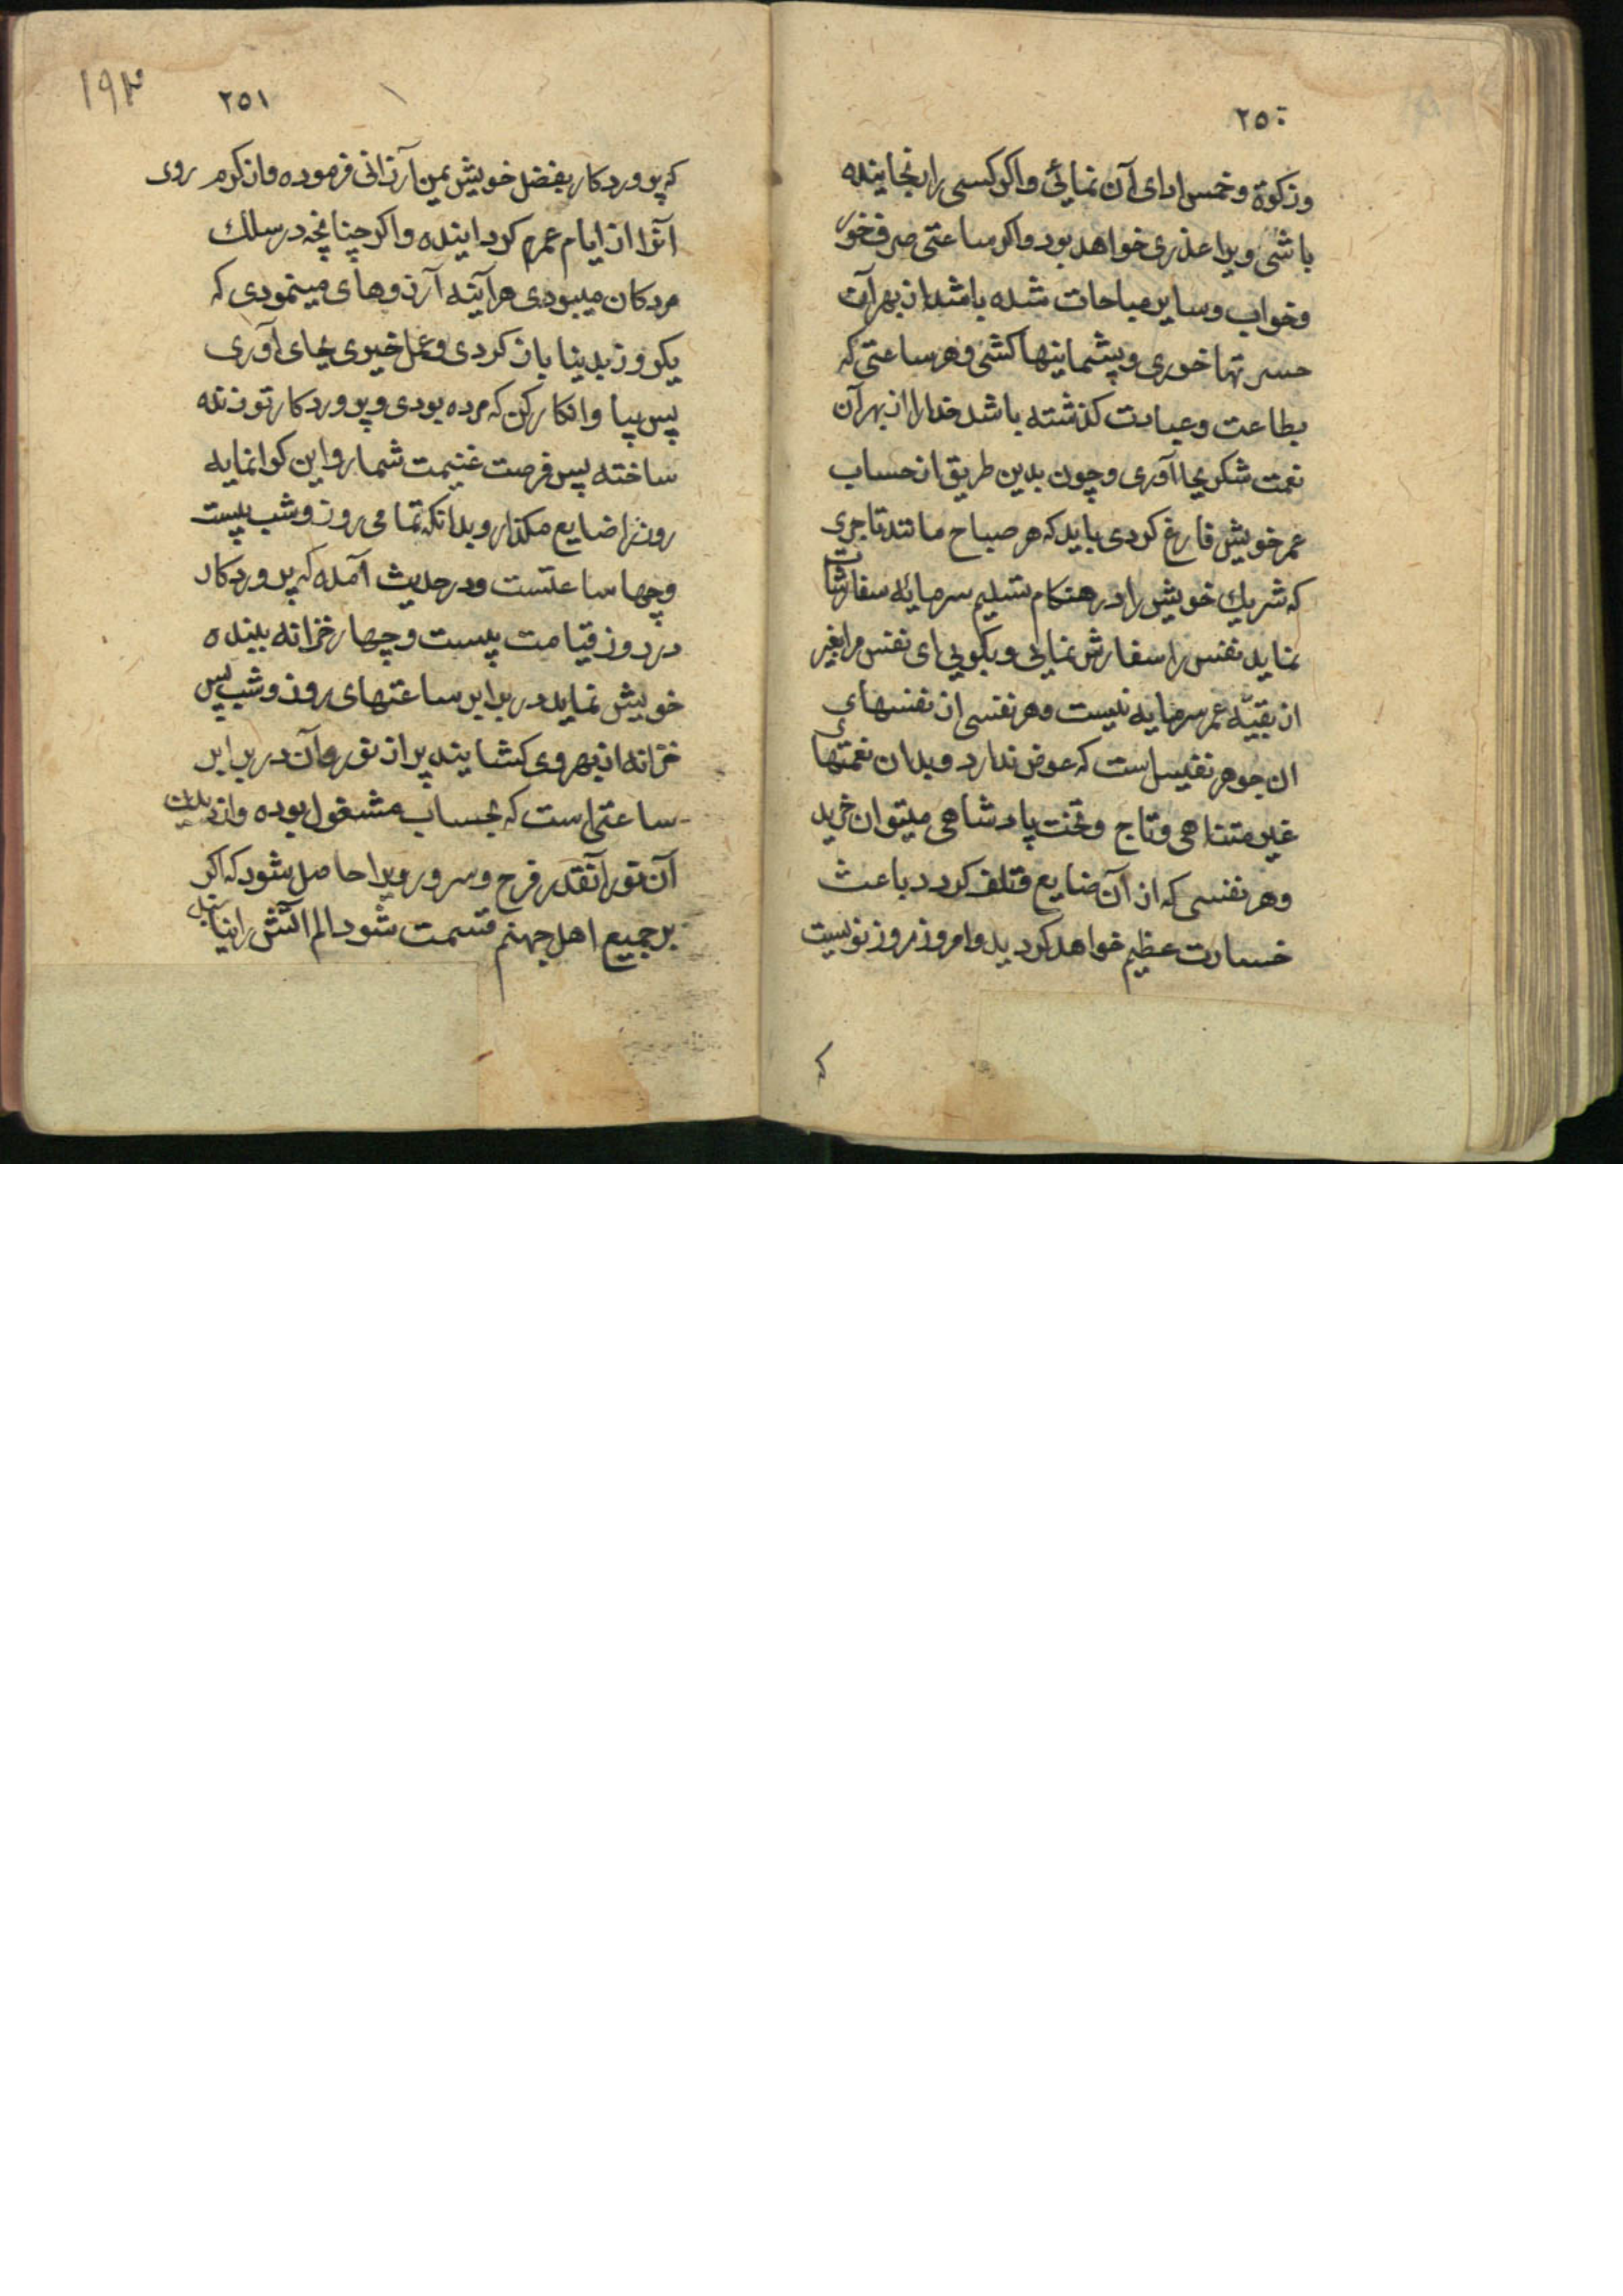 ۲۵۰
وزکوة وخمس ادای آن نمائی واکر کسی را رنجانیده
باشی ویرا عذری خواهد بود واکر ساعتی صرف خور
وخواب وسایر مباحات شده باشد از بهر آن
حسرتها خوری وپشمانیها کشی وهر ساعتی که
بطاعت وعبادت کذشته باشد خدارا از بهر آن
نعمت شکر بجا آوری وچون بدین طریق از حساب
عمر خویش فارغ کردی باید که هر صباح مانند تاجری
که شریك خویش را در هنکام تسلیم سرمایه سفارشات
نماید نفس را سفارش نمائی وبکویی ای نفس مرا بغیر
از بقیّه عمر سرمایه نیست وهر نفسی از نفسهای
ان جوهر نفیس است که عوض ندارد وبدان نعمتهای
غیر متناهی وتاج وتخت پادشاهی میتوان خرید
وهر نفسی که از آن ضایع وتلف کردد باعث
خسارت عظیم خواهد کردید وامروز روز نویست
که
۱۹۳
۲۵۱
که پروردکار بفضل خویش بمن ارزانی فرموده واز کرم روی
آنرا از ایام عمرم کردانیده واکر چنانچه در سلك
مردکان میبودی هرآینه آرزوهای مینمودی که
یکروز بدنیا باز کردی وعمل خیری بجای آوری
پس بیا وانکار کن که مرده بودی وپروردکار تو زنده
ساخته پس فرصت غنیمت شمار واین کرانمایه
روز را ضایع مکذار وبدانکه تمامی روز وشب بیست
وچهار ساعتست ودر حدیث آمده که پروردکار
در روز قیامت بیست وچهار خزانه ببنده
خویش نماید در برابر ساعتهای روز وشب پس
خزانه از بهر وی کشایند پر از نور وآن در برابر
ساعتی است که بحساب مشغول بوده واز دیدن
آن نور آنقدر فرح وسرور ویرا حاصل شود که اکر
بر جمیع اهل جهنم قسمت شود الم آتش را نیابند